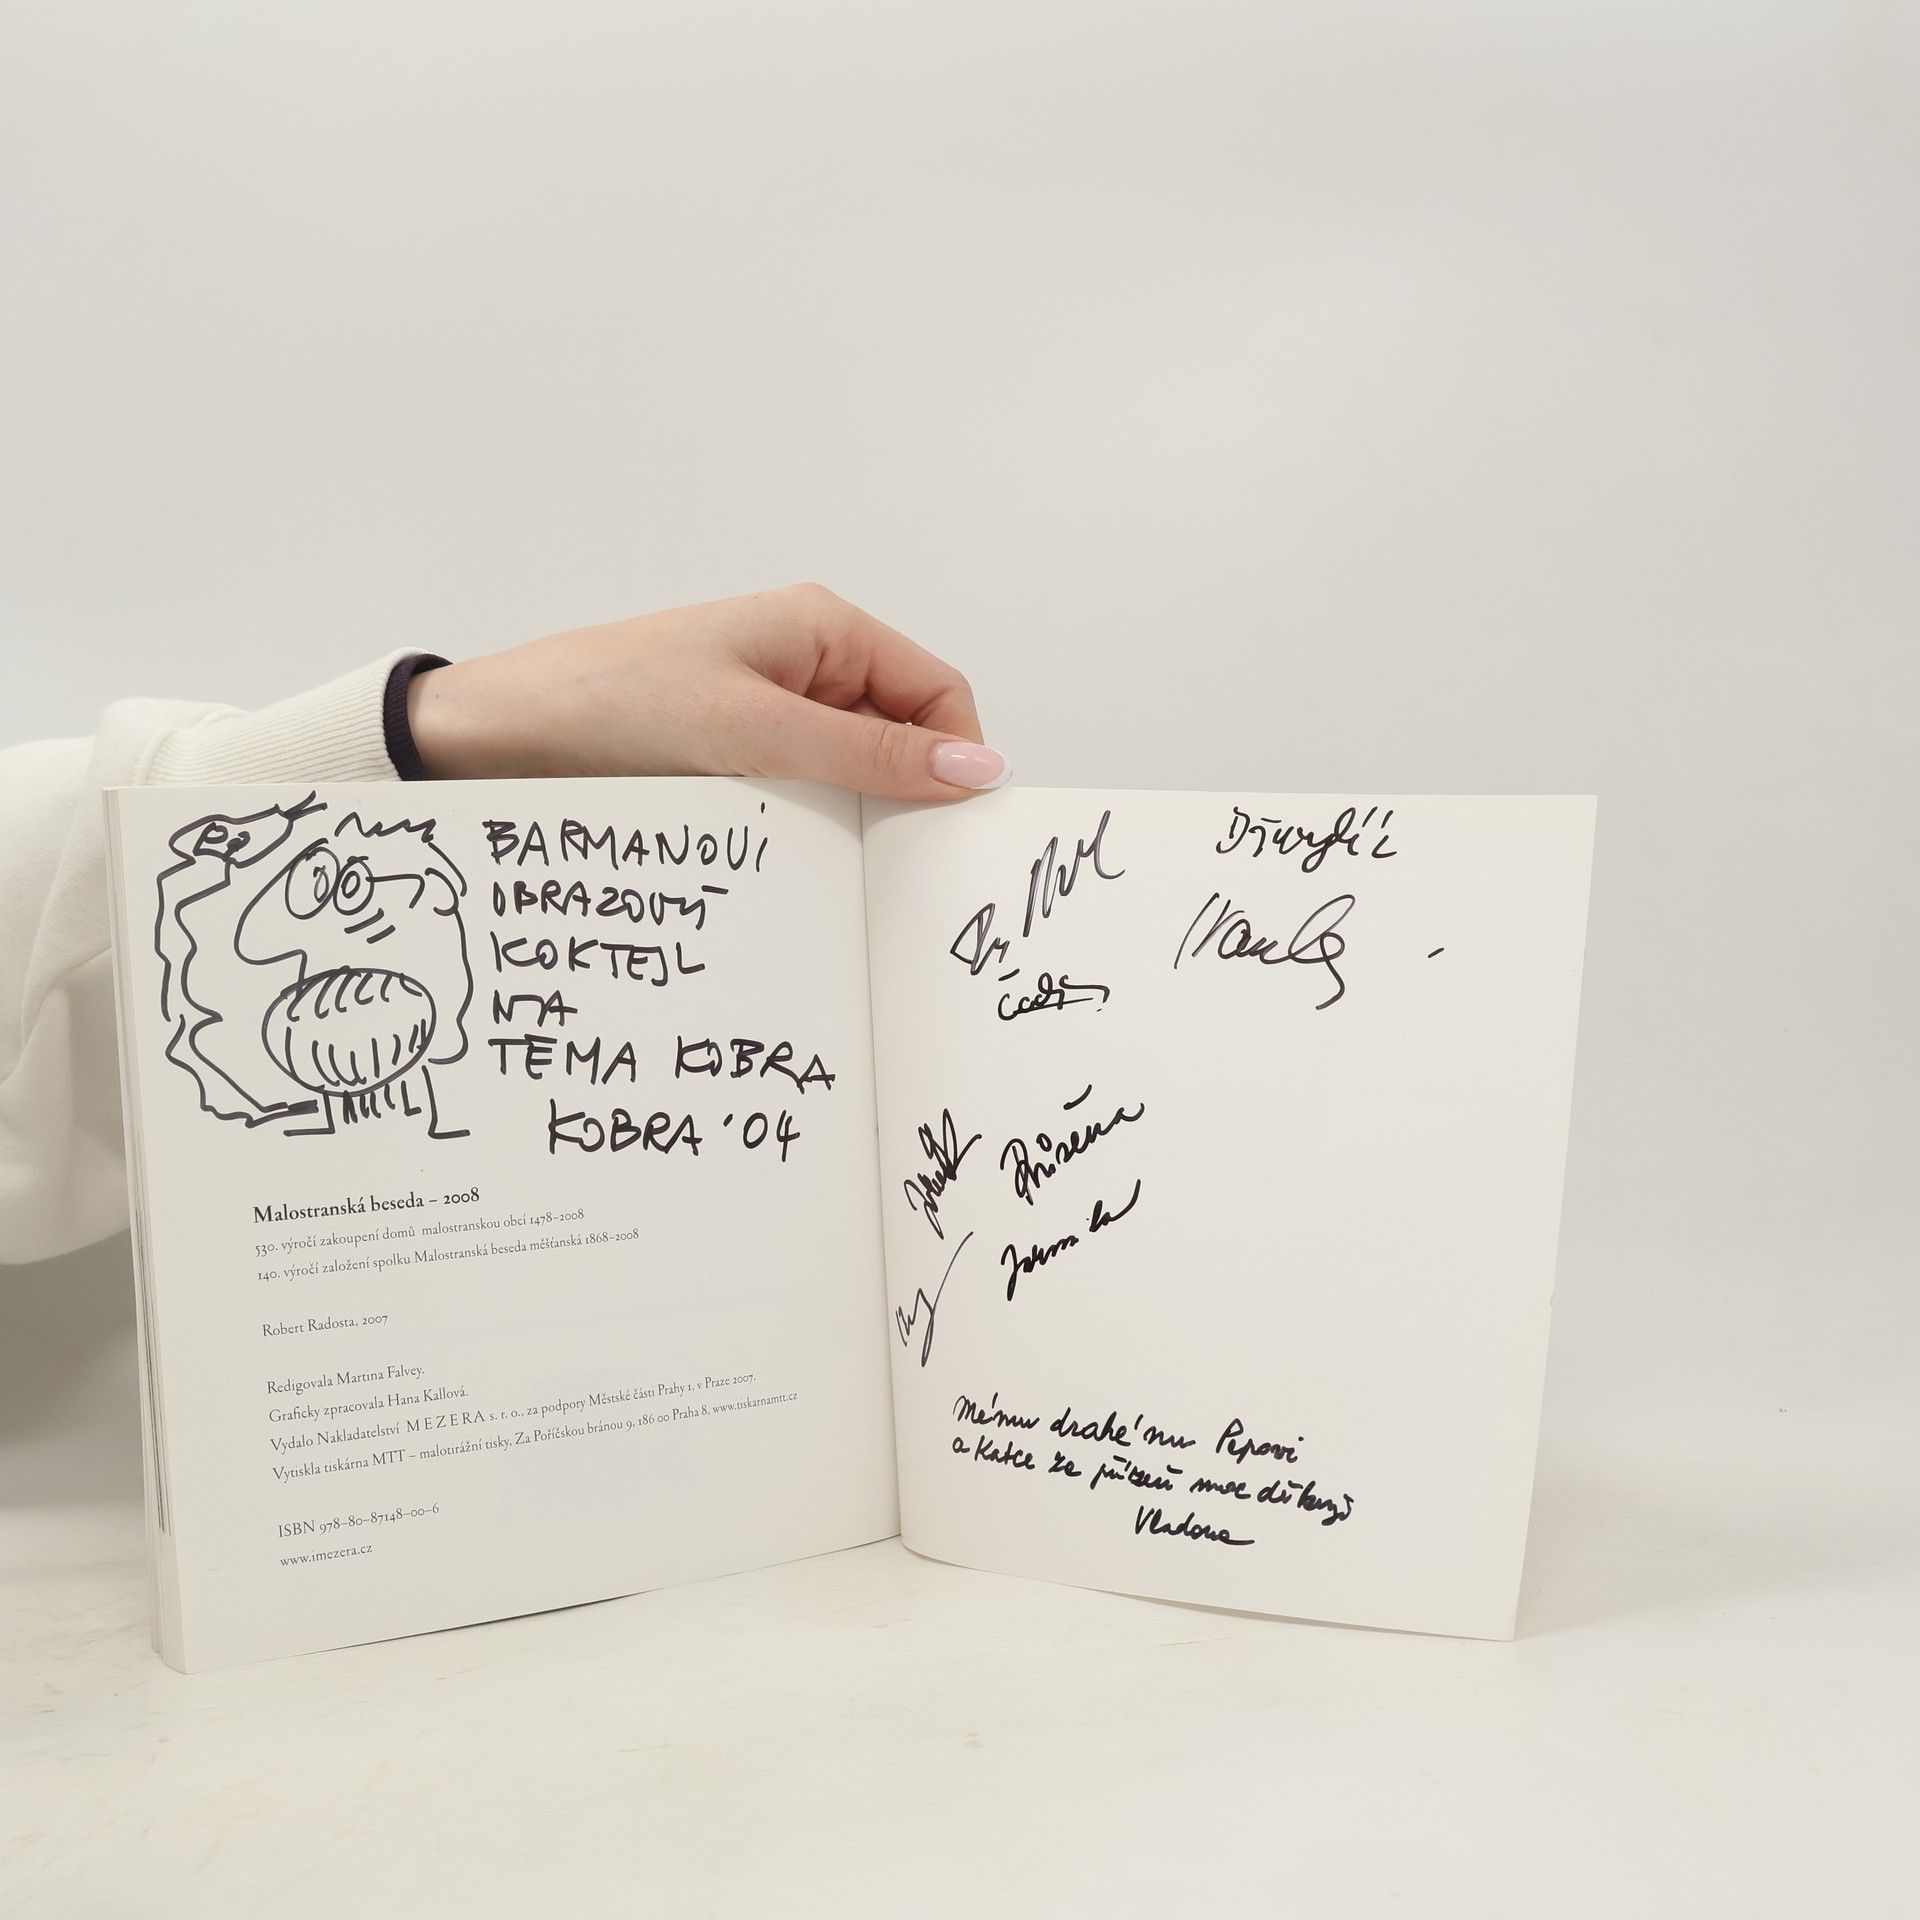 BARMANOVI
OBRAZOVÝ
KOKTEJL
NA
TÉMA KOBRA
KOBRA '04
Malostranská beseda – 2008
530. výročí zakoupení domů malostranskou obcí 1478–2008
140. výročí založení spolku Malostranská beseda měšťanská 1868–2008
Robert Radosta, 2007
Redigovala Martina Falvey.
Graficky zpracovala Hana Kallová.
Vydalo Nakladatelství MEZERA s. r. o., za podpory Městské části Prahy 1, v Praze 2007.
Vytiskla tiskárna MTT – malotirážní tisky, Za Poříčskou bránou 9, 186 00 Praha 8, www.tiskarnamtt.cz
ISBN 978–80–87148–00–6
www.imezera.cz
Růžena
Jarmila
Mému drahému Pepovi
a Katce za přízeň moc děkuji
Vladona